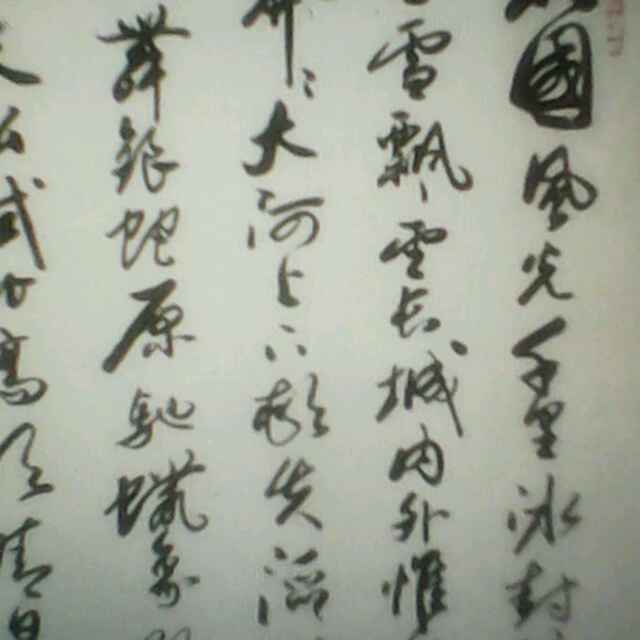 國風光千里冰封
雪飄望長城内外惟
大河上下頓失滔
舞銀蛇原馳蠟象
公試比高須晴日